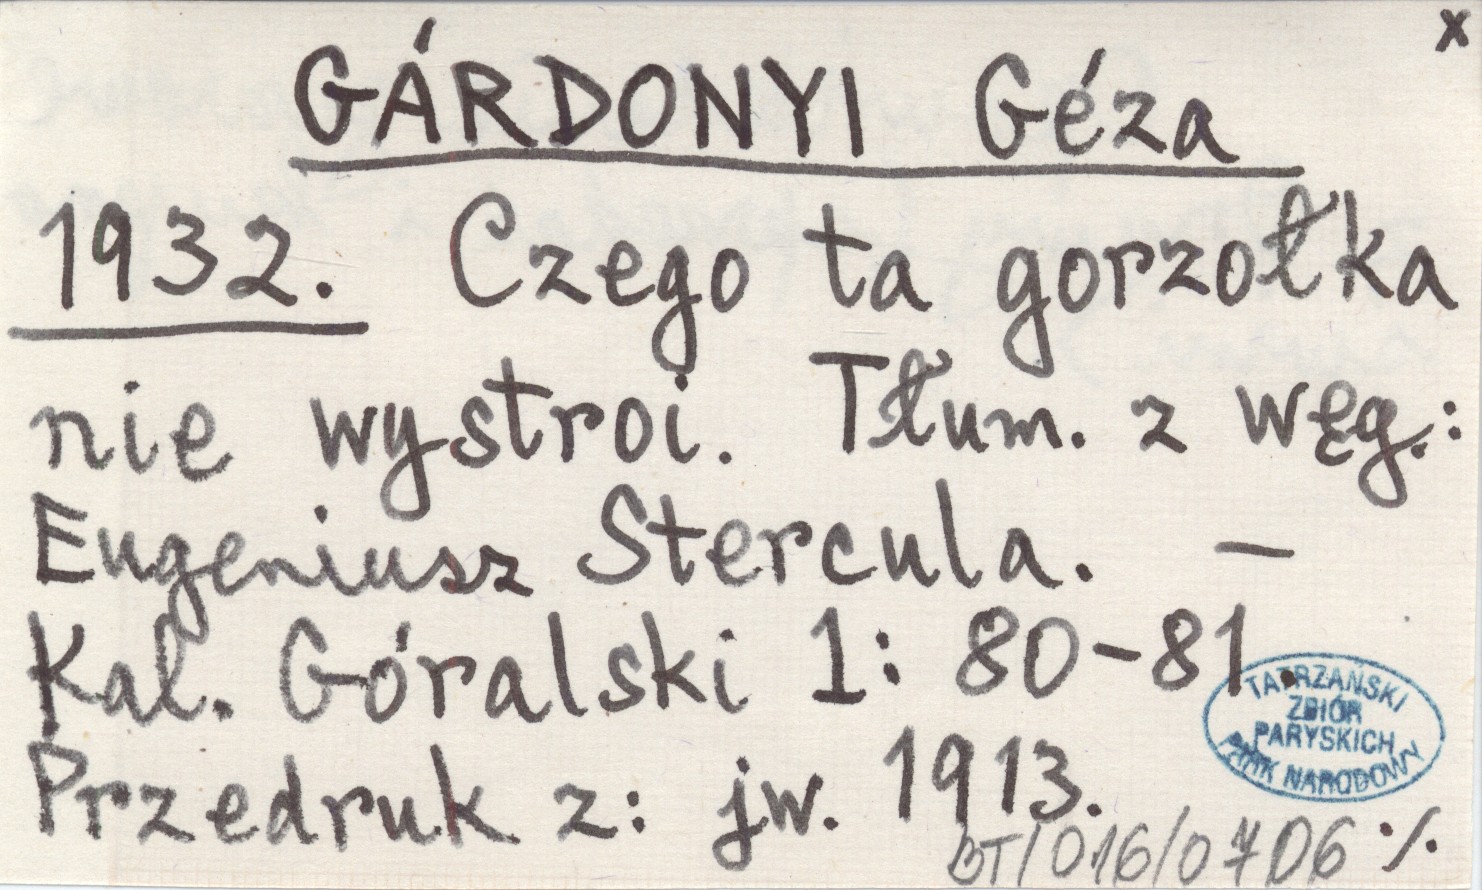 x
GÁRDONYI Géza
1932. Czego ta gorzołka
nie wystroi. Tłum. z węg.:
Eugeniusz Stercula. —
Kal. Góralski 1: 80-81.
Przedruk z: jw. 1913.
TATRZAŃSKI
ZBIÓR
PARYSKICH
PARK NARODOWY
BT/016/0706 ·/.